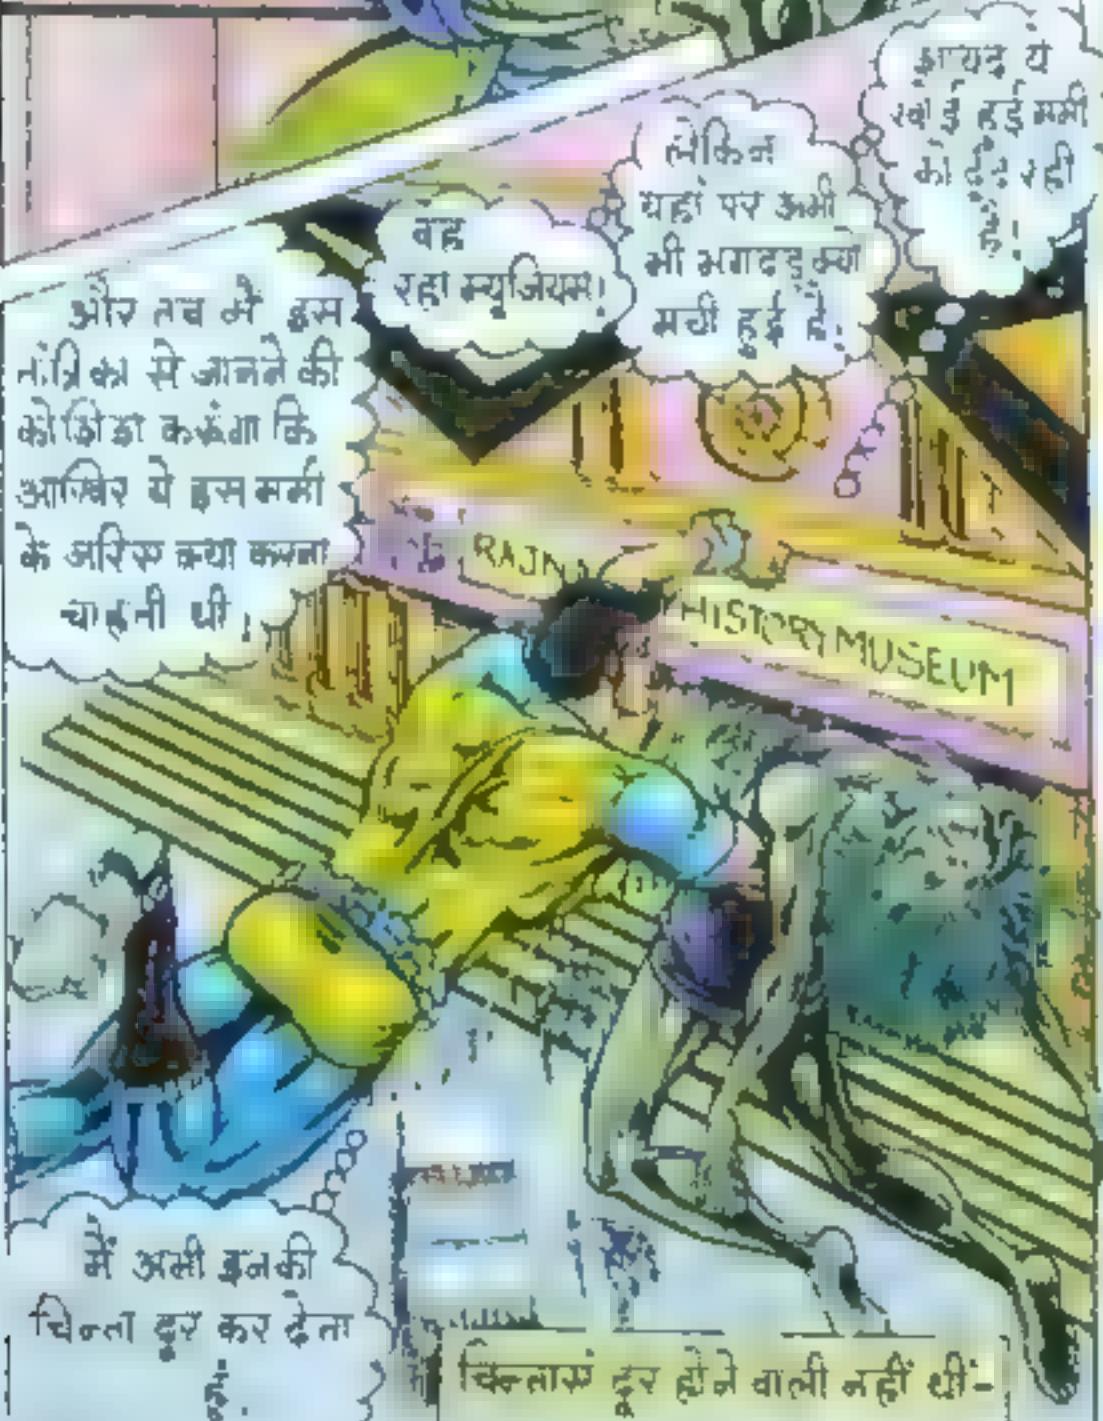 और तब मैं इस
तांत्रिका से जानने की
कोशिश करूंगा कि
आखिर ये इस ममी
के जरिए क्या करना
चाहती थी!
वह
रहा म्यूजियम!
लेकिन
यहां पर अभी
भी भगदड़ क्यों
मची हुई है!
शायद ये
खोई हुई ममी
को ढूंढ रही
है!
RAJN
HISTORY MUSEUM
मैं अभी इनकी
चिन्ता दूर कर देता
हूं!
चिन्ताएं दूर होने वाली नहीं थीं-